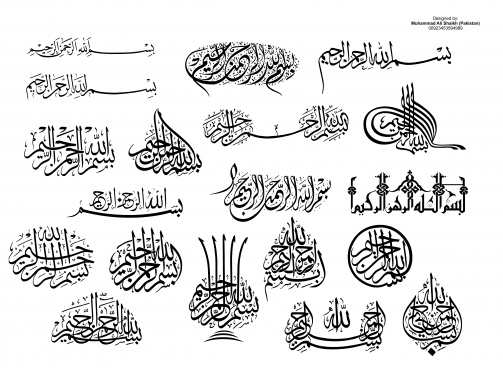 Designed by:
Muhammad Ali Shaikh (Pakistan)
بسم الله الرحمن الرحيم
بسم الله الرحمن الرحيم
بسم الله الرحمن الرحيم
بسم الله الرحمن الرحيم
بسم الله الرحمن الرحيم
بسم الله الرحمن الرحيم
بسم الله الرحمن الرحيم
بسم الله الرحمن الرحيم
بسم الله الرحمن الرحيم
بسم الله الرحمن الرحيم
بسم الله الرحمن الرحيم
بسم الله الرحمن الرحيم
بسم الله الرحمن الرحيم
بسم الله الرحمن الرحيم
بسم الله الرحمن الرحيم
بسم الله الرحمن الرحيم
بسم الله الرحمن الرحيم
بسم الله الرحمن الرحيم
بسم الله الرحمن الرحيم